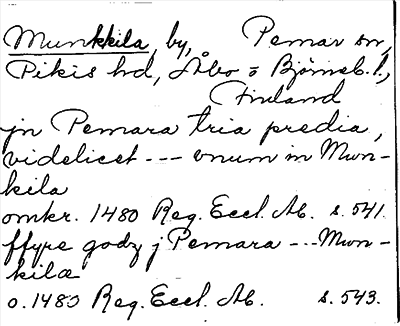 Munkkila, by, Pemar sn,
Pikis hd, Åbo o Björneb. l.,
Finland
jn Pemara tria predia,
videlicet --- vnum in Mun-
kila
omkr. 1480 Reg. Eccl. Ab. s. 541.
ffyre godz j Pemara --- Mun-
kila
o. 1480 Reg. Eccl. Ab. s. 543.